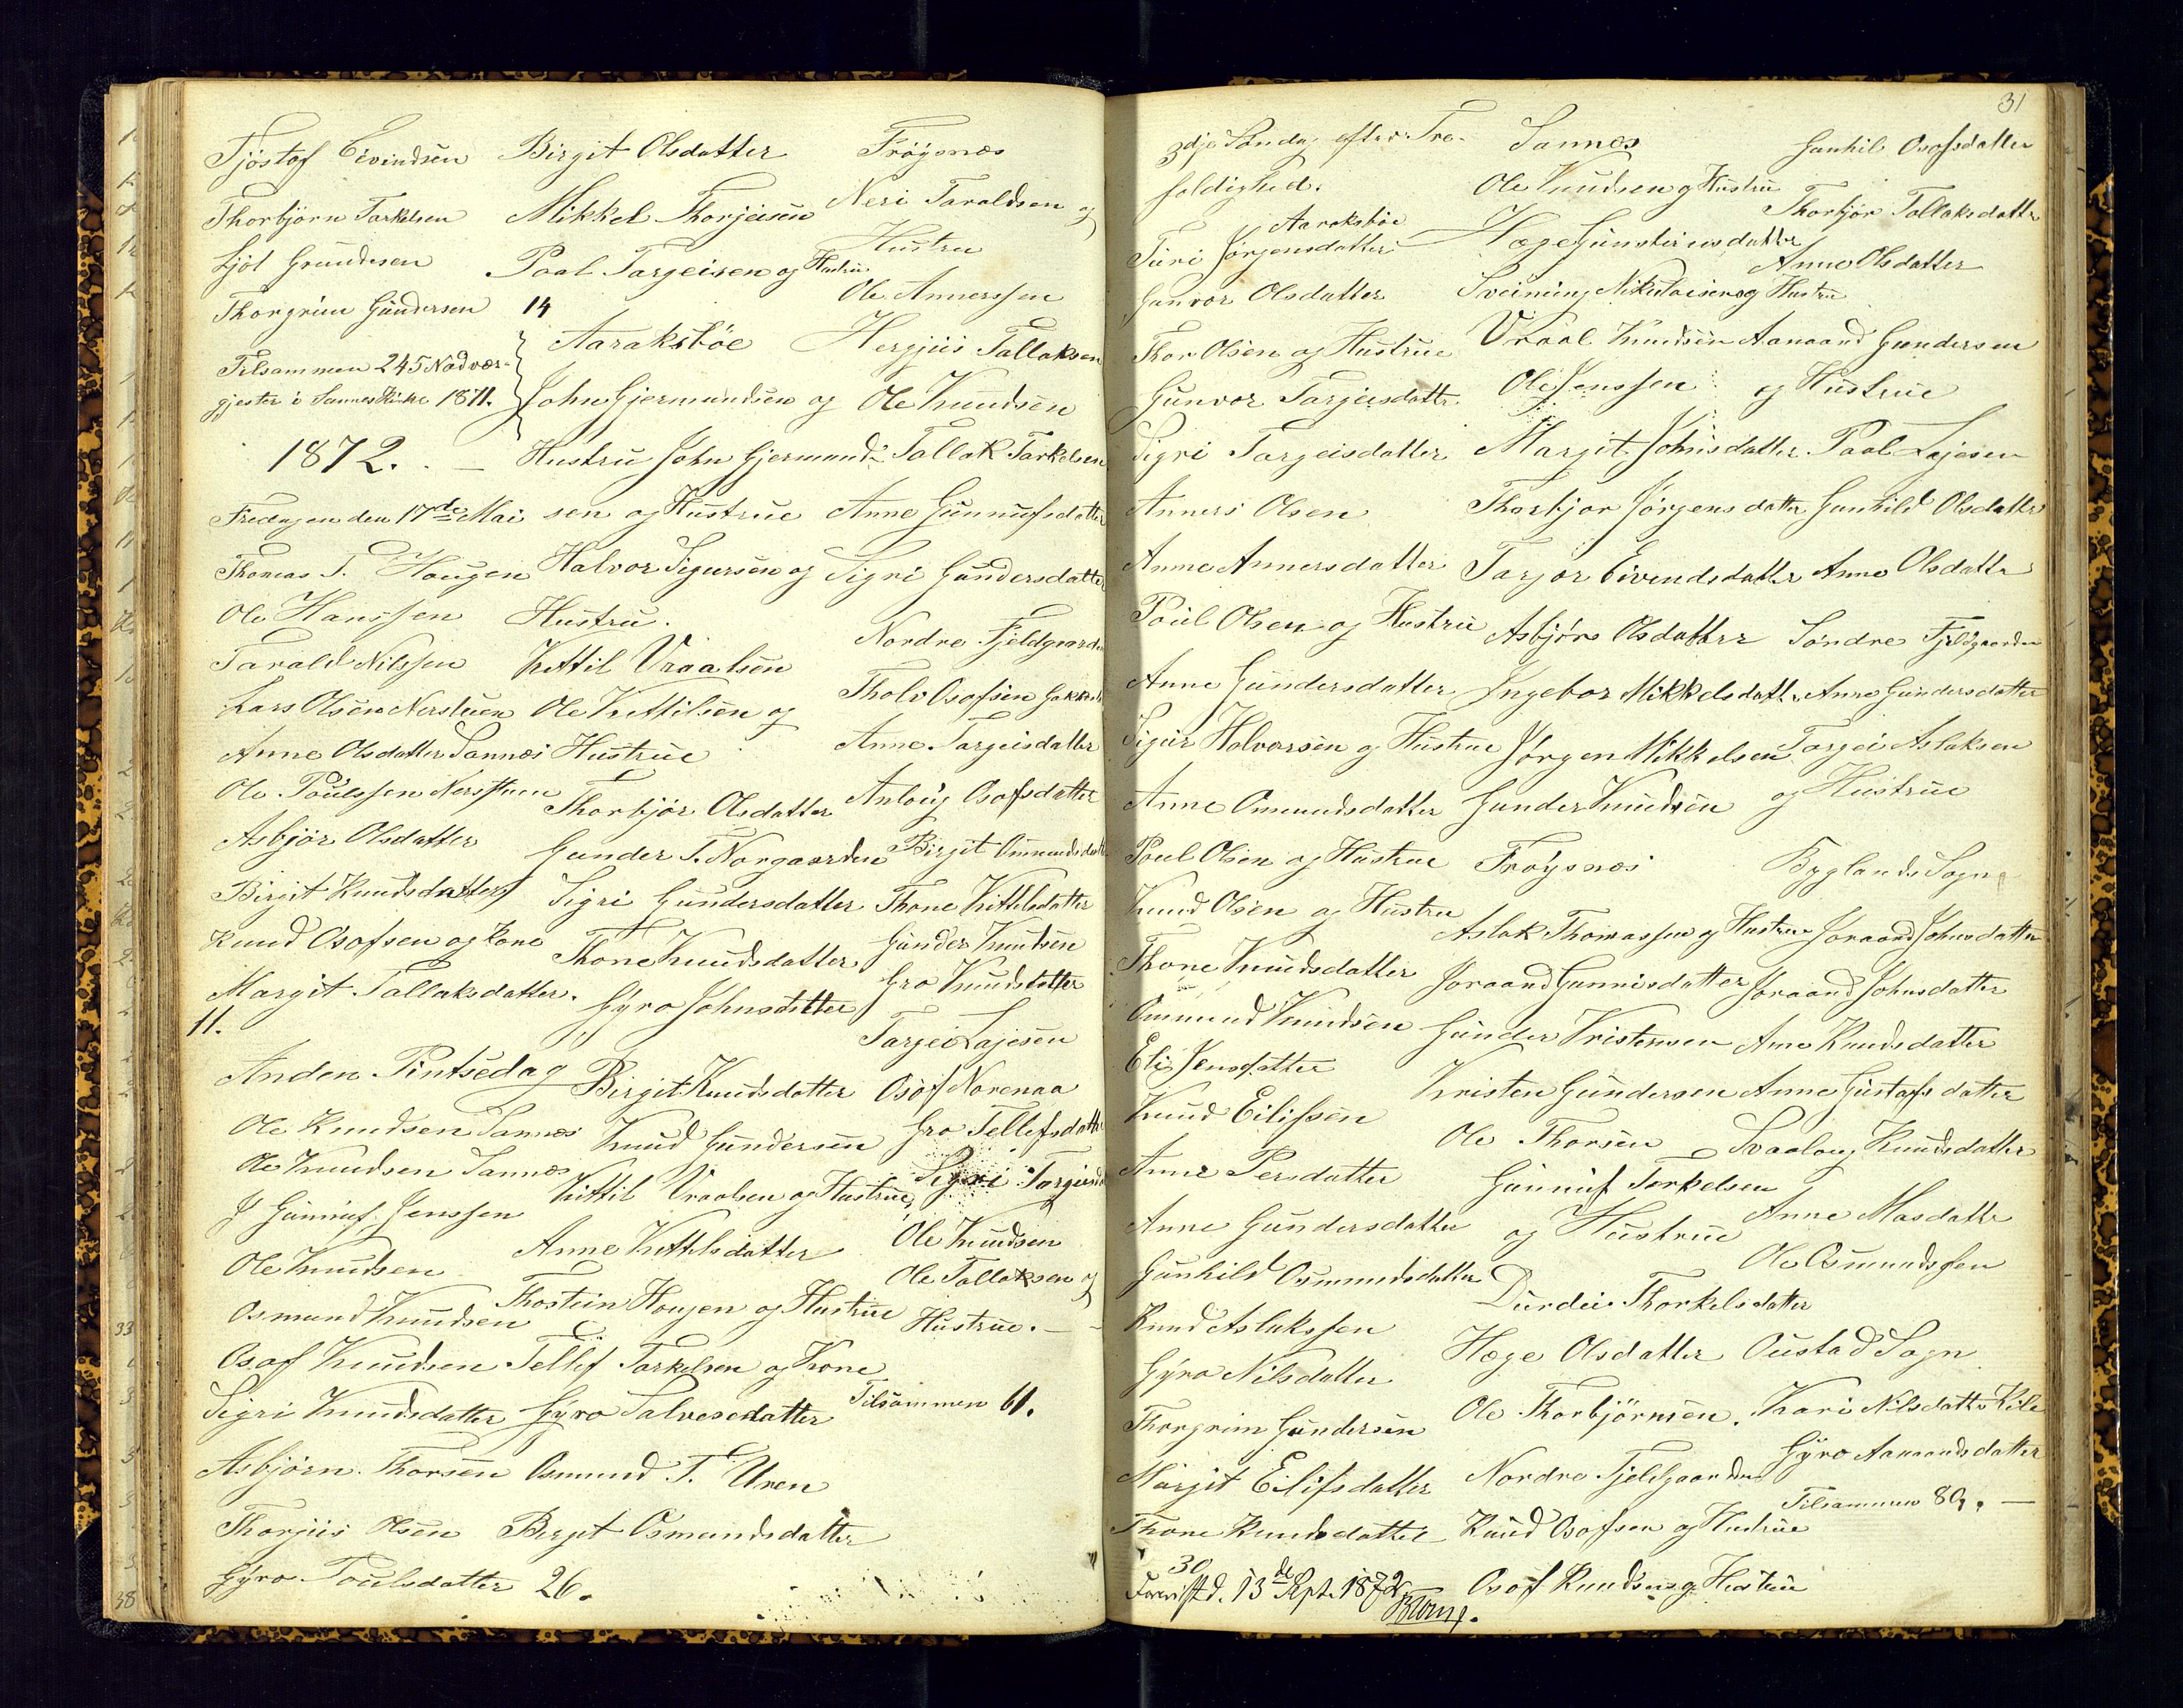 Tjöstof Eivindsen
Thorbjörn Tarkelsen
Ljöl Grundesen
Thorgrim Gundersen
Tilsammen 245 Nadver-
gjester i Sannes Kirke 1871.
1872.
Fredagen den 17de Mai
Thomas T. Haugen
Ole Hanssen
Tarald Nilssen
Lars Olsen Nersteen
Anne Olsdatter Sannes
Ole Poulssen Nersteen
Asbjör Olsdatter
Birgit Knudsdatter
Knud Osofsen og Kone
Margit Tallaksdatter.
11.
Anden Pintsedag
Ole Knudsen Sannes
Ole Knudsen Sannes
Gunnuf Jenssen
Ole Knudsen
Osmund Knudsen
Osof Knudsen
Sigri Knudsdatter
Asbjörn Thorsen
Thorjus Olsen
Gyro Poulsdatter
Birgit Olsdatter
Mikkel Thorjeisen
Paal Targeisen og Hustru
14
Aaraksböe
John Gjermundsen og
Hustru John Gjermund-
sen og Hustrue
Halvor Sigursen og
Hustru.
Kittil Vraalsen
Ole Kittilsen og
Hustrue
Thorbjör Olsdatter
Gunder T. Norgaarden
Sigri Gundersdatter
Thone Knudsdatter
Gyro Johnsdatter
Birgit Knudsdatter
Knud Gundersen
Kittil Vraalsen og Hustrue
Anne Kittilsdatter
Thostein Hougen og Hustrue
Tellef Tarkelsen og Kone
Gyro Salvesdatter
Osmund T. Uren
Birgit Osmundsdatter
26.
Fröysnæs
Neri Taraldsen og
Hustru
Ole Annerssen
Hergjus Tallaksen
Ole Knudsen
Tallak Tarkelsen
Anne Gunnufsdatter
Sigri Gundersdatter
Nordre Fjeldgaarden
Tholv Osofsen
Anne Targeisdatter
Anloug Osofsdatter
Birgit Omundsdatt
Thone Kittilsdatter
Gunder Knudsen
Gro Knudsdatter
Targei Lajesen
Osof Norenaa
Gro Tellefsdatter
Sigri Targeisd
Ole Knudsen
Ole Tallaksen og
Hustrue.
Tilsammen 61.
31
3dje Søndag efter Tre-
foldighed.
Aaraksböe
Turi Jörgensdatter
Gunvor Olsdatter
Thor Olsen og Hustrue
Gunvor Targeisdatter
Sigri Targeisdatter
Anners Olsen
Anne Annersdatter
Poul Olsen og Hustru
Anne Gundersdatter
Sigur Halvorsen og Hustrue
Anne Omundsdatter
Poul Olsen og Hustrue
Knud Olsen og Hustru
Thone Knudsdatter
Ommund Knudsen
Eli Jensdatter
Knud Eilifsen
Anne Persdatter
Anne Gundersdatter
Gunhild Osmundsdatter
Knud Aslakssen
Gyro Nilsdatter
Thorgrim Gundersen
Margit Eilifsdatter
Thone Knudsdatter
30
d. 13de Sept. 1872
Sannes
Ole Knudsen og Hustru
Hæge Gunsteinsdatter
Sveinung Nikulaisen og Hustru
Vraal Knudsen
Ole Jenssen
Margit Johnsdatter
Thorbjor Jörgensdatter
Tarjor Eivendsdatter
Asbjörs Olsdatter
Ingebor Mikkelsdatt.
Jörgen Mikkelsen
Gunder Knudsen
Fröysnæs
Aslak Thomassen og Hustru
Joraand Gunnisdatter
Gunder Kristensen
Kristen Gundersen
Ole Thorsen
Gunnuf Torkelsen
og Hustrue
Durdei Thorkelsdatter
Hæge Olsdatter
Ole Thorbjörnsen
Nordre Fjeldgaarden
Knud Osofsen og Hustrue
Osof Knudsen og Hustru
Gunhild Osofsdatter
Thorbjör Tallaksdatter
Anne Olsdatter
Aanaand Gundersen
og Hustrue
Paal Lajesen
Gunhild Olsdatter
Anne Olsdatter
Söndre Fjeldgaarden
Anne Gundersdatter
Targei Aslaksen
og Hustrue
Byglands Sogn
Joraand Johnsdatter
Joraand Johnsdatter
Anne Knudsdatter
Anne Gustafsdatter
Svaaloug Knudsdatter
Anne Masdatter
Ole Osmundssen
Oustad Sogn
Kari Nilsdatter Kile
Gyro Aanaandsdatter
Tilsammen 89.